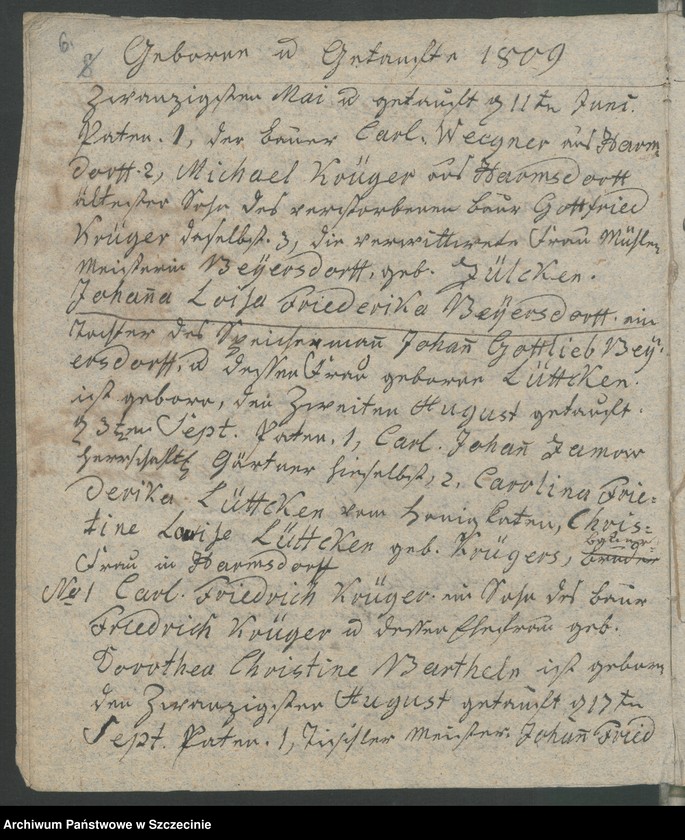 6.
8 Geborne u Getaufte 1809
Zwanzigsten Mai u getauft d 11 tn Juni.
Paten. 1, der Bauer Carl. Wergner aus Harm
dorff. 2, Michael Krüger aus Harmsdorff
ältester Sohn des verstorbenen Baur Gottfried
Krüger daselbst. 3, die verwittwete Frau Mühlen
Meisterin Beÿersdorff, geb. Jülcken.
Johana Loisa Friederika Beÿersdorff. ein
Tochter des Johan Gottlieb Beÿ.
ersdorff, u dessen Frau geborne Lüttcken.
ist geboren, den Zweiten August getauft.
d 3 ten Sept. Paten. 1, Carl. Johan Jamow
herrschaftl Gärtner hieselbst, 2, Carolina Frie=
derika Lüttcken vom Chris=
tine Louise Lüttcken geb. Krügers,
Frau in Harmsdorff
No 1 Carl. Friedrich Krüger. ein Sohn des Baur
Friedrich Krüger u dessen Ehefrau geb.
Dorothea Christine Bartheln ist geboren
den Zwanzigsten August getauft d 17 tn
Sept. Paten. 1, Tischler Meister. Johan Fried
Archiwum Państwowe w Szczecinie